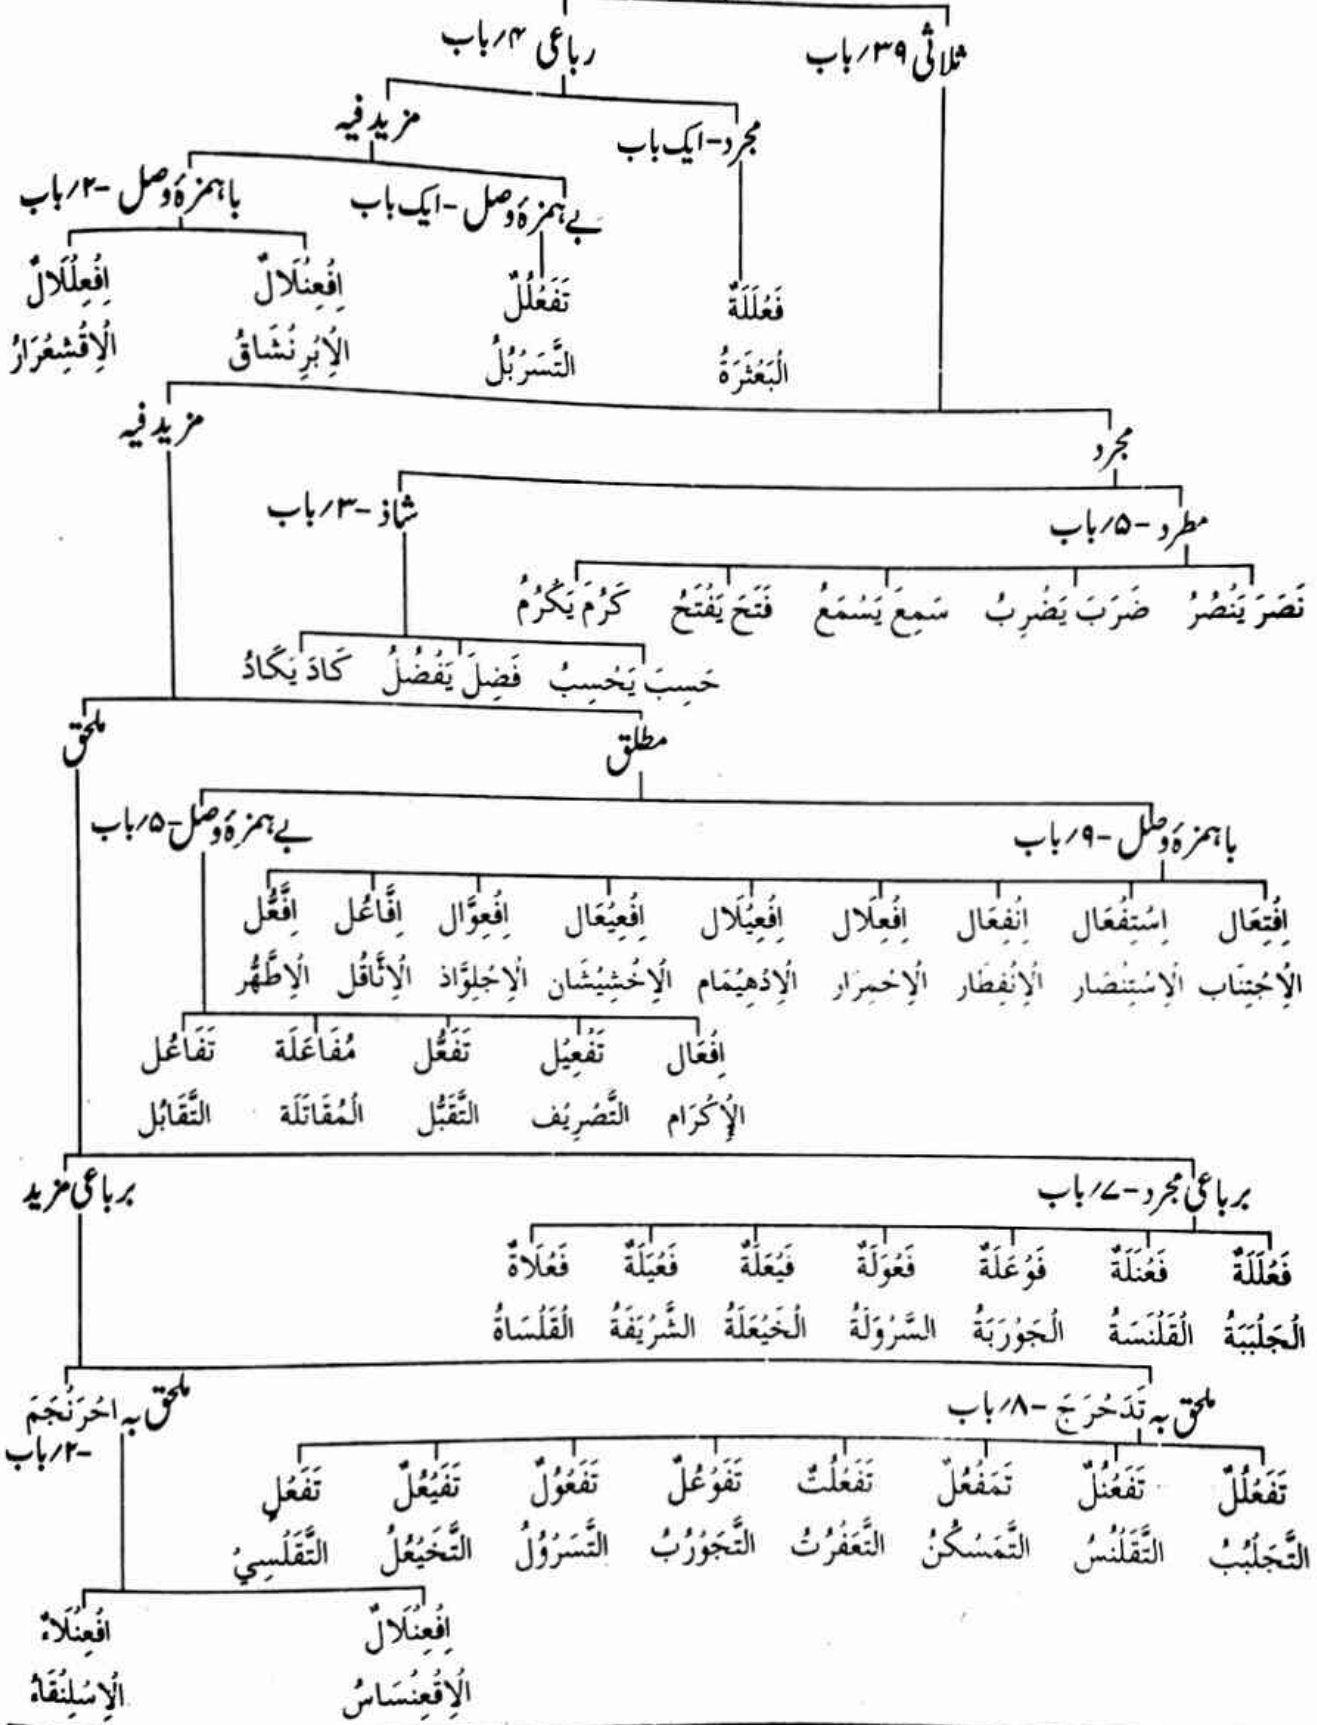 ثلاثی ۳۹/باب رباعی ۴/باب
مجرد-ایک باب مزید فیہ
بے ہمزۂ وصل-ایک باب باہمزۂ وصل-۲/باب
فَعْلَلَةٌ تَفَعْلُلٌ اِفْعِنْلَالٌ اِفْعِلْلَالٌ
الْبَعْثَرَةُ التَّسَرْبُلُ الْاِبْرِنْشَاقُ الْاِقْشِعْرَارُ
مجرد مزید فیہ
مطرد-۵/باب شاذ-۳/باب
نَصَرَ يَنْصُرُ ضَرَبَ يَضْرِبُ سَمِعَ يَسْمَعُ فَتَحَ يَفْتَحُ كَرُمَ يَكْرُمُ
حَسِبَ يَحْسِبُ فَضِلَ يَفْضُلُ كَادَ يَكَادُ
مطلق ملحق
باہمزۂ وصل-۹/باب بے ہمزۂ وصل-۵/باب
اِفْتِعَال اِسْتِفْعَال اِنْفِعَال اِفْعِلَال اِفْعِيْلَال اِفْعِيْعَال اِفْعِوَّال اِفَّاعُل اِفَّعُّل
الْاِجْتِنَاب الْاِسْتِنْصَار الْاِنْفِطَار الْاِحْمِرَار الْاِدْهِيْمَام الْاِخْشِيْشَان الْاِجْلِوَّاذ الْاِثَّاقُل الْاِطَّهُّر
اِفْعَال تَفْعِيْل تَفَعُّل مُفَاعَلَة تَفَاعُل
الْاِكْرَام التَّصْرِيْف التَّقَبُّل الْمُقَاتَلَة التَّقَابُل
برباعی مجرد-۷/باب برباعی مزید
فَعْلَلَةٌ فَعْنَلَةٌ فَوْعَلَةٌ فَعْوَلَةٌ فَيْعَلَةٌ فَعْيَلَةٌ فَعْلَاةٌ
الْجَلْبَبَةُ الْقَلْنَسَةُ الْجَوْرَبَةُ السَّرْوَلَةُ الْخَيْعَلَةُ الشَّرْيَفَةُ الْقَلْسَاةُ
ملحق بہ تَدَحْرَجَ-۸/باب ملحق بہ احْرَنْجَمَ
-۲/باب
تَفَعْلُلٌ تَفَعْنُلٌ تَمَفْعُلٌ تَفَعْلُتٌ تَفَوْعُلٌ تَفَعْوُلٌ تَفَيْعُلٌ تَفَعْلٍ
التَّجَلْبُبُ التَّقَلْنُسُ التَّمَسْكُنُ التَّعَفْرُتُ التَّجَوْرُبُ التَّسَرْوُلُ التَّخَيْعُلُ التَّقَلْسِيْ
اِفْعِنْلَالٌ افْعِنْلَاءٌ
الْاِقْعِنْسَاسُ الْاِسْلِنْقَاءُ